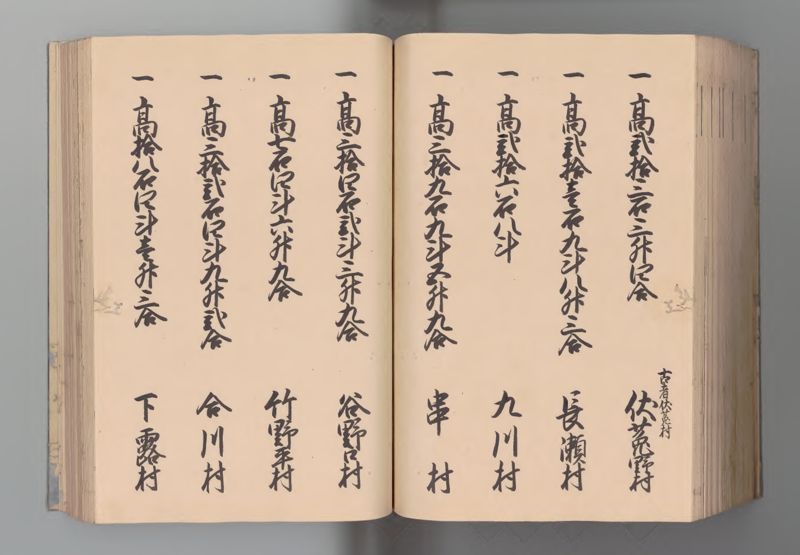 一 高弐拾三石三斗四合
古者伏菟村
伏菟野村
一 高弐拾壱石九斗八升三合
長瀬村
一 高弐拾六石八斗
九川村
一 高三拾九石九斗五升九合
串村
一 高三拾四石弐斗三升九合
谷野口村
一 高七石四斗六升九合
竹野平村
一 高三拾弐石四斗九升弐合
合川村
一 高拾八石四斗壱升三合
下露村